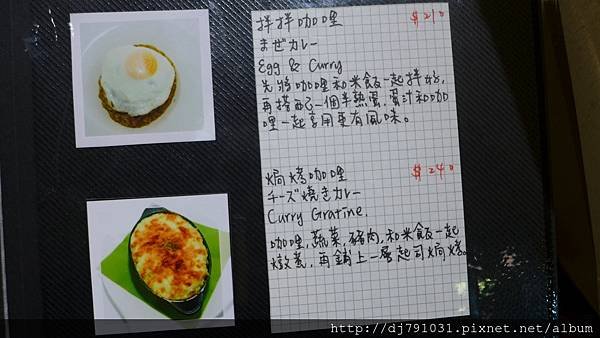 拌拌咖哩 $210
まぜカレー
Egg & Curry
先將咖哩和米飯一起拌好,
再搭配一個半熟蛋,蛋汁和咖
哩一起享用更有風味。
焗烤咖哩 $240
チーズ焼きカレー
Curry Gratine.
咖哩,蔬菜,豬肉,和米飯一起
燉煮,再鋪上一層起司焗烤。
http://dj791031.pixnet.net/album